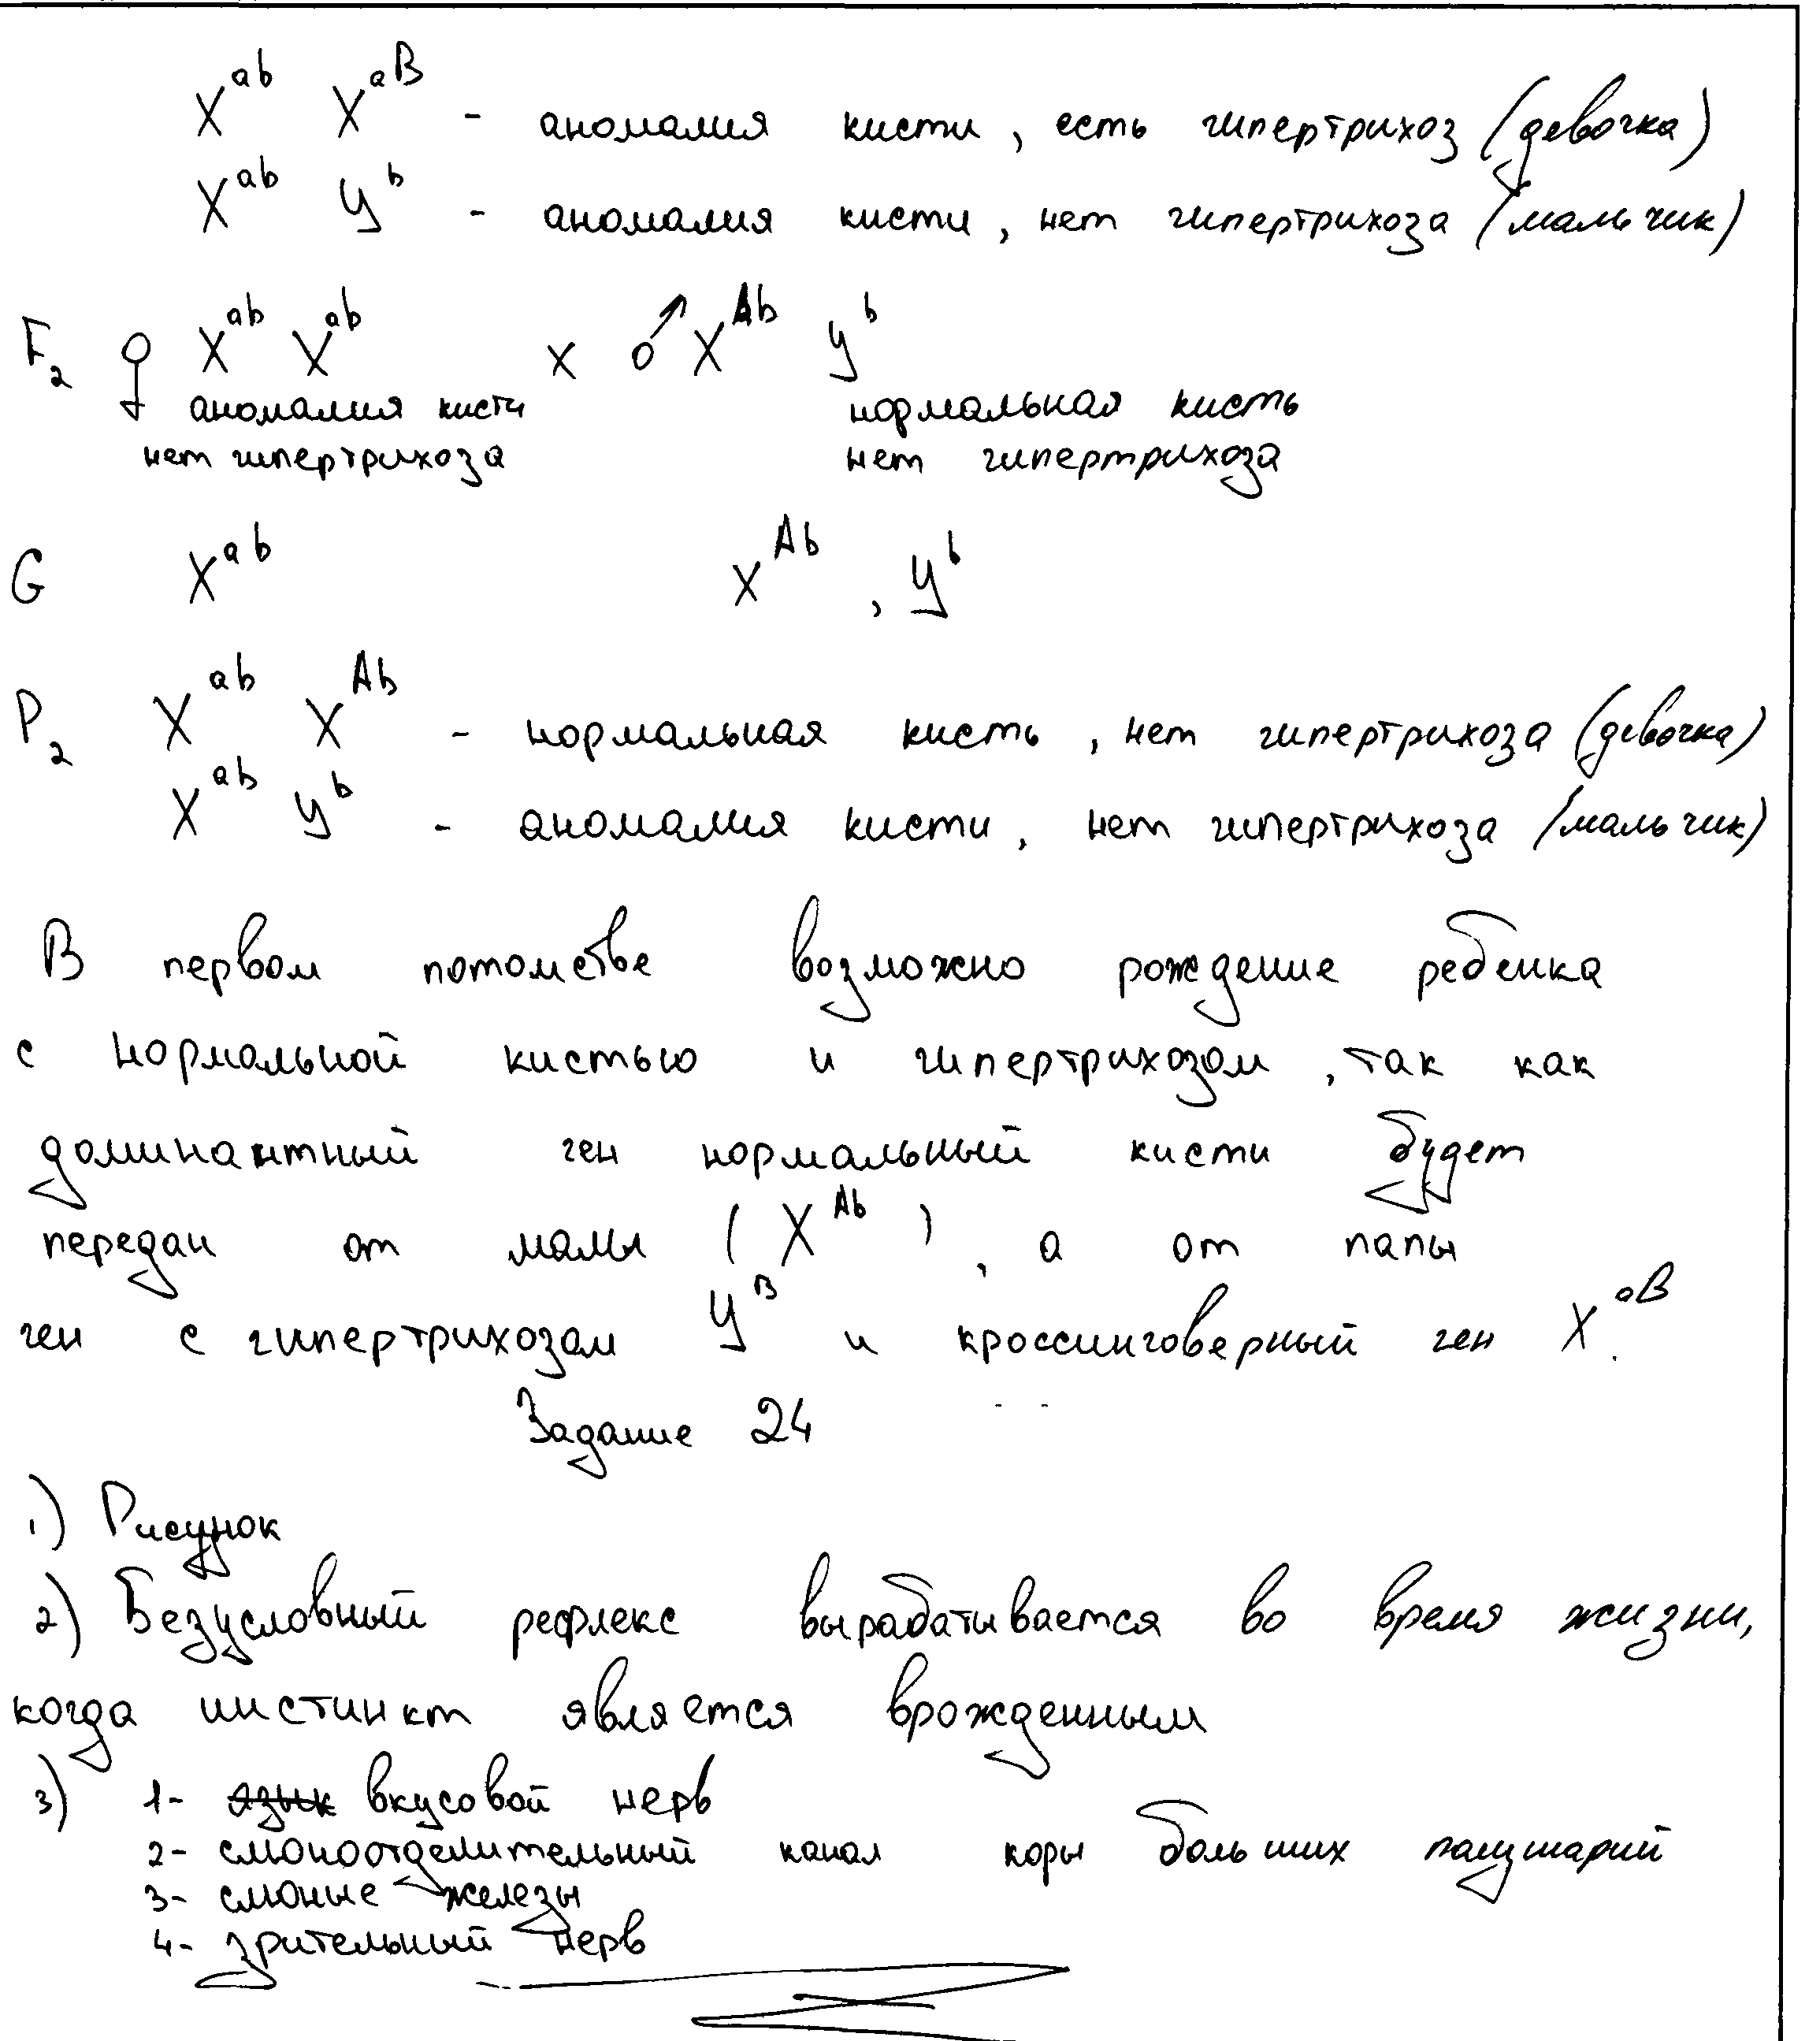 X^ab X^aB - аномалия кисти, есть гипертрихоз (девочка)
X^ab У^b - аномалия кисти, нет гипертрихоза (мальчик)
F₂ ♀ X^ab X^ab x ♂ X^Ab У^b
аномалия кисти нормальная кисть
нет гипертрихоза нет гипертрихоза
G X^ab X^Ab , У^b
P₂ X^ab X^Ab - нормальная кисть, нет гипертрихоза (девочка)
X^ab У^b - аномалия кисти, нет гипертрихоза (мальчик)
В первом потомстве возможно рождение ребенка
с нормальной кистью и гипертрихозом, так как
доминантный ген нормальный кисти будет
передан от мамы (X^Ab), а от папы
ген с гипертрихозом У^B и кроссинговерный ген X^aB.
Задание 24
1) Рисунок
2) Безусловный рефлекс вырабатывается во время жизни,
когда инстинкт является врожденным
3) 1- язык вкусовой нерв
2- слюноотделительный канал коры больших полушарий
3- слюные железы
4- зрительный нерв